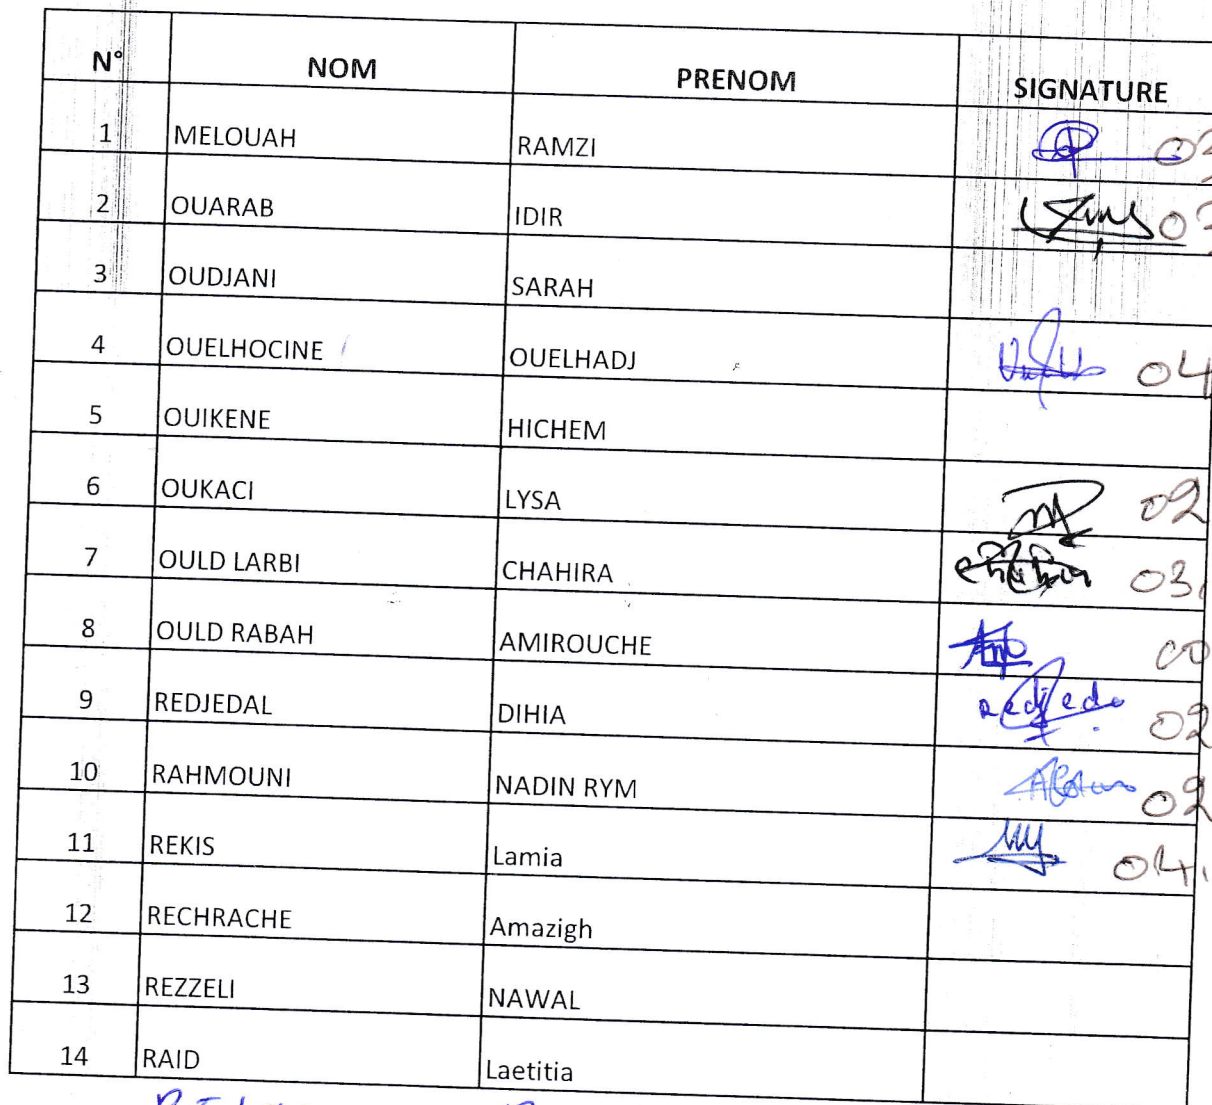 N° NOM PRENOM SIGNATURE
1 MELOUAH RAMZI
2 OUARAB IDIR
3 OUDJANI SARAH
4 OUELHOCINE OUELHADJ 04
5 OUIKENE HICHEM
6 OUKACI LYSA 02
7 OULD LARBI CHAHIRA 03
8 OULD RABAH AMIROUCHE
9 REDJEDAL DIHIA 02
10 RAHMOUNI NADIN RYM 02
11 REKIS Lamia 04
12 RECHRACHE Amazigh
13 REZZELI NAWAL
14 RAID Laetitia